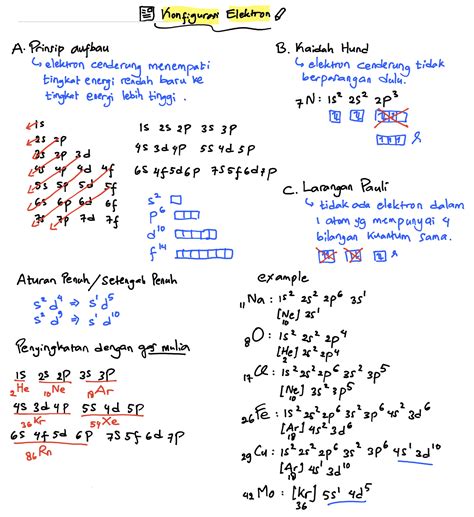 Konfigurasi Elektron
A. Prinsip aufbau
↳ elektron cenderung menempati
tingkat energi rendah baru ke
tingkat energi lebih tinggi.
1s
2s 2p
3s 3p 3d
4s 4p 4d 4f
5s 5p 5d 5f
6s 6p 6d 6f
7s 7p 7d 7f
1s 2s 2p 3s 3p
4s 3d 4p 5s 4d 5p
6s 4f 5d 6p 7s 5f 6d 7p
s²
p⁶
d¹⁰
f¹⁴
B. Kaidah Hund
↳ elektron cenderung tidak
berpasangan dulu.
₇N : 1s² 2s² 2p³
C. Larangan Pauli
↳ tidak ada elektron dalam
1 atom yg mempunyai 4
bilangan kuantum sama.
Aturan Penuh / Setengah Penuh
s² d⁴ ⇒ s¹ d⁵
s² d⁹ ⇒ s¹ d¹⁰
Penyingkatan dengan gas mulia
1s 2s 2p 3s 3p
₂He ₁₀Ne ₁₈Ar
4s 3d 4p 5s 4d 5p
₃₆Kr ₅₄Xe
6s 4f 5d 6p 7s 5f 6d 7p
₈₆Rn
example
₁₁Na : 1s² 2s² 2p⁶ 3s¹
[Ne] 3s¹
10
₈O : 1s² 2s² 2p⁴
[He] 2s² 2p⁴
2
₁₇Cl : 1s² 2s² 2p⁶ 3s² 3p⁵
[Ne] 3s² 3p⁵
10
₂₆Fe : 1s² 2s² 2p⁶ 3s² 3p⁶ 4s² 3d⁶
[Ar] 4s² 3d⁶
18
₂₉Cu : 1s² 2s² 2p⁶ 3s² 3p⁶ 4s¹ 3d¹⁰
[Ar] 4s¹ 3d¹⁰
18
₄₂Mo : [Kr] 5s¹ 4d⁵
36